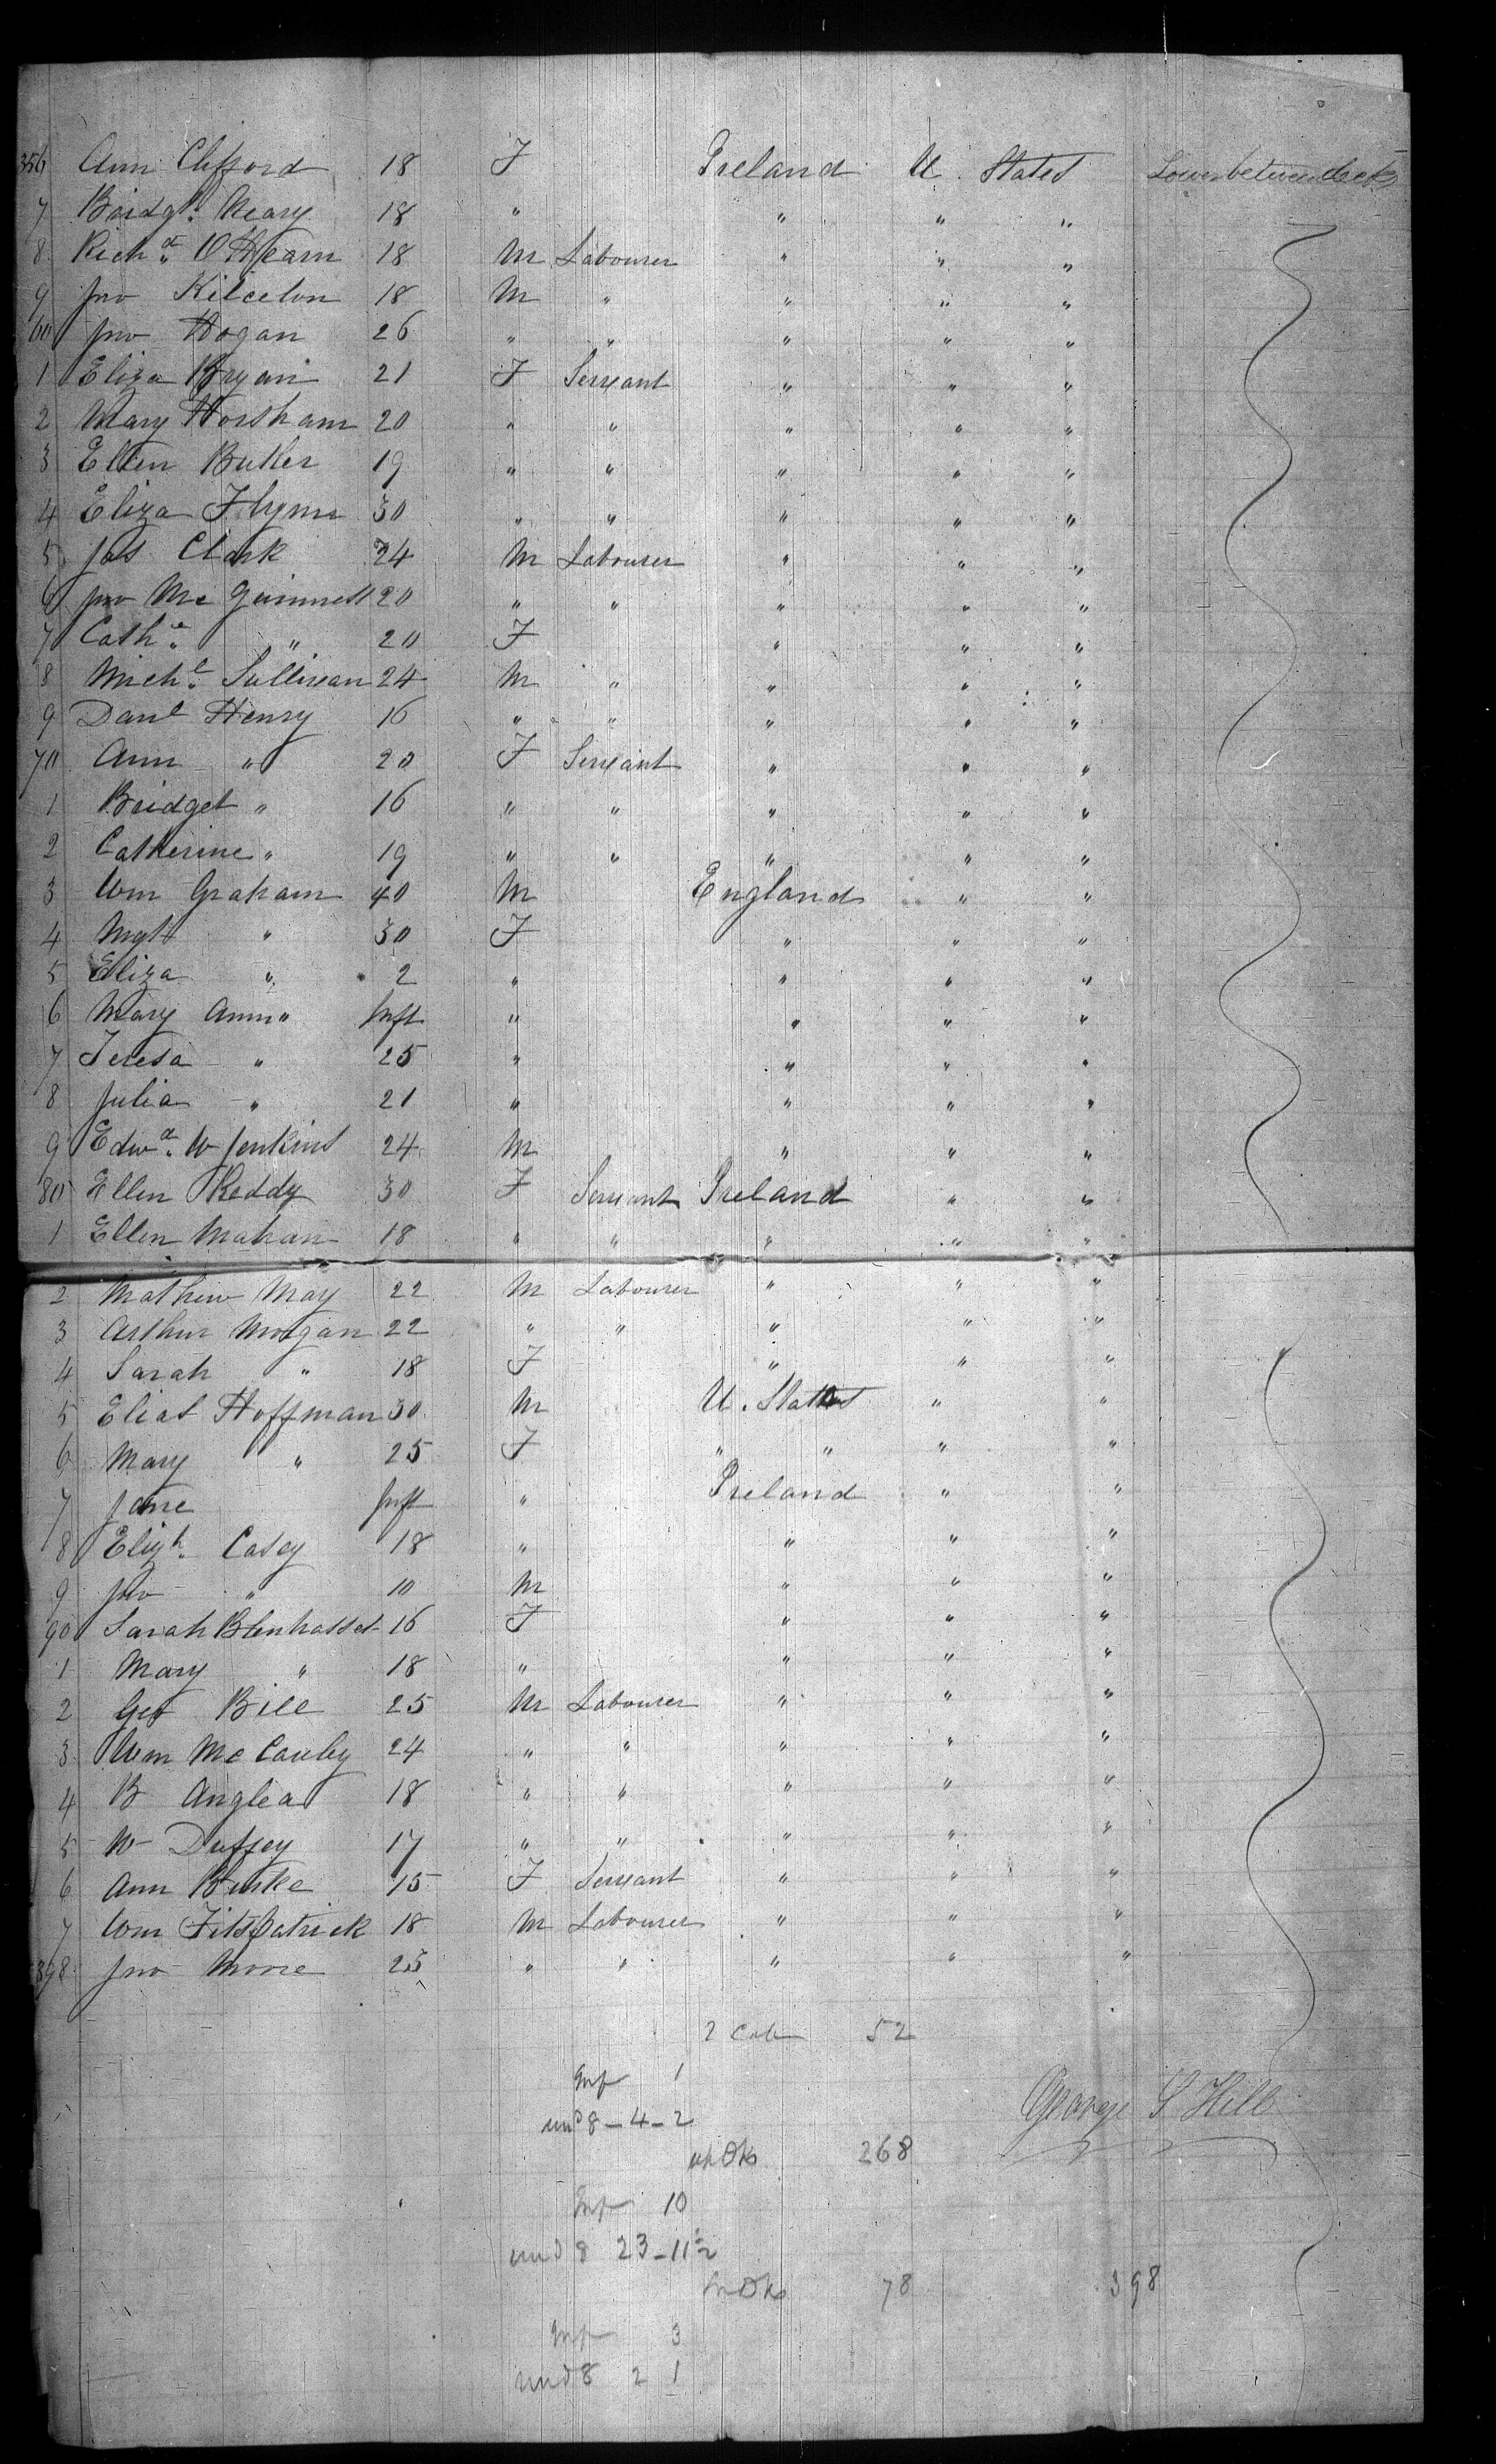 356 Ann Clifford 18 F Ireland U. States Lower between decks
7 Bridgt. Neary 18 " " " "
8 Richd. O'Hearn 18 M Labourer " " "
9 Jno Kilcelon 18 M " " " "
60 Jno Hogan 26 " " " " "
1 Eliza Bryan 21 F Servant " " "
2 Mary Horsham 20 " " " " "
3 Ellen Butler 19 " " " " "
4 Eliza Flynn 30 " " " " "
5 Jas Clark 24 M Labourer " " "
6 Jno Mc 20 " " " " "
7 Cathe. " 20 F " " "
8 Michl. Sullivan 24 M " " " "
9 Danl Henry 16 " " " " "
70 Ann " 20 F Servant " " "
1 Bridget " 16 " " " " "
2 Catherine " 19 " " " " "
3 Wm Graham 40 M England " "
4 Mgt " 30 F " " "
5 Eliza " 2 " " " "
6 Mary Ann " Inft " " " "
7 Teresa " 25 " " " "
8 Julia " 21 " " " "
9 Edwd. W Jenkins 24 M " " "
80 Ellen Reddy 30 F Servant Ireland " "
1 Ellen Mahan 18 " " " " "
2 Mathew May 22 M Labourer " " "
3 Arthur Morgan 22 " " " " "
4 Sarah " 18 F " " "
5 Elias Hoffman 30 M U. States " "
6 Mary " 25 F " " " "
7 Jane Inft " Ireland " "
8 Elizh. Casey 18 " " " "
9 Jno " 10 M " " "
90 Sarah Blenhasset 16 F " " "
1 Mary " 18 " " " "
2 Geo Bill 25 M Labourer " " "
3 Wm Mc Cauley 24 " " " " "
4 B Anglea 18 " " " " "
5 W Duffey 17 " " " " "
6 Ann Burke 15 F Servant " " "
7 Wm Fitspatrick 18 M Labourer " " "
398 Jno Morre 25 " " " " "
2 Cab 52
Inf 1
und 8 - 4 - 2
George S Hill
up Dks 268
Inf 10
und 8 23 - 11½
Dks 78 398
Inf 3
und 8 2 1